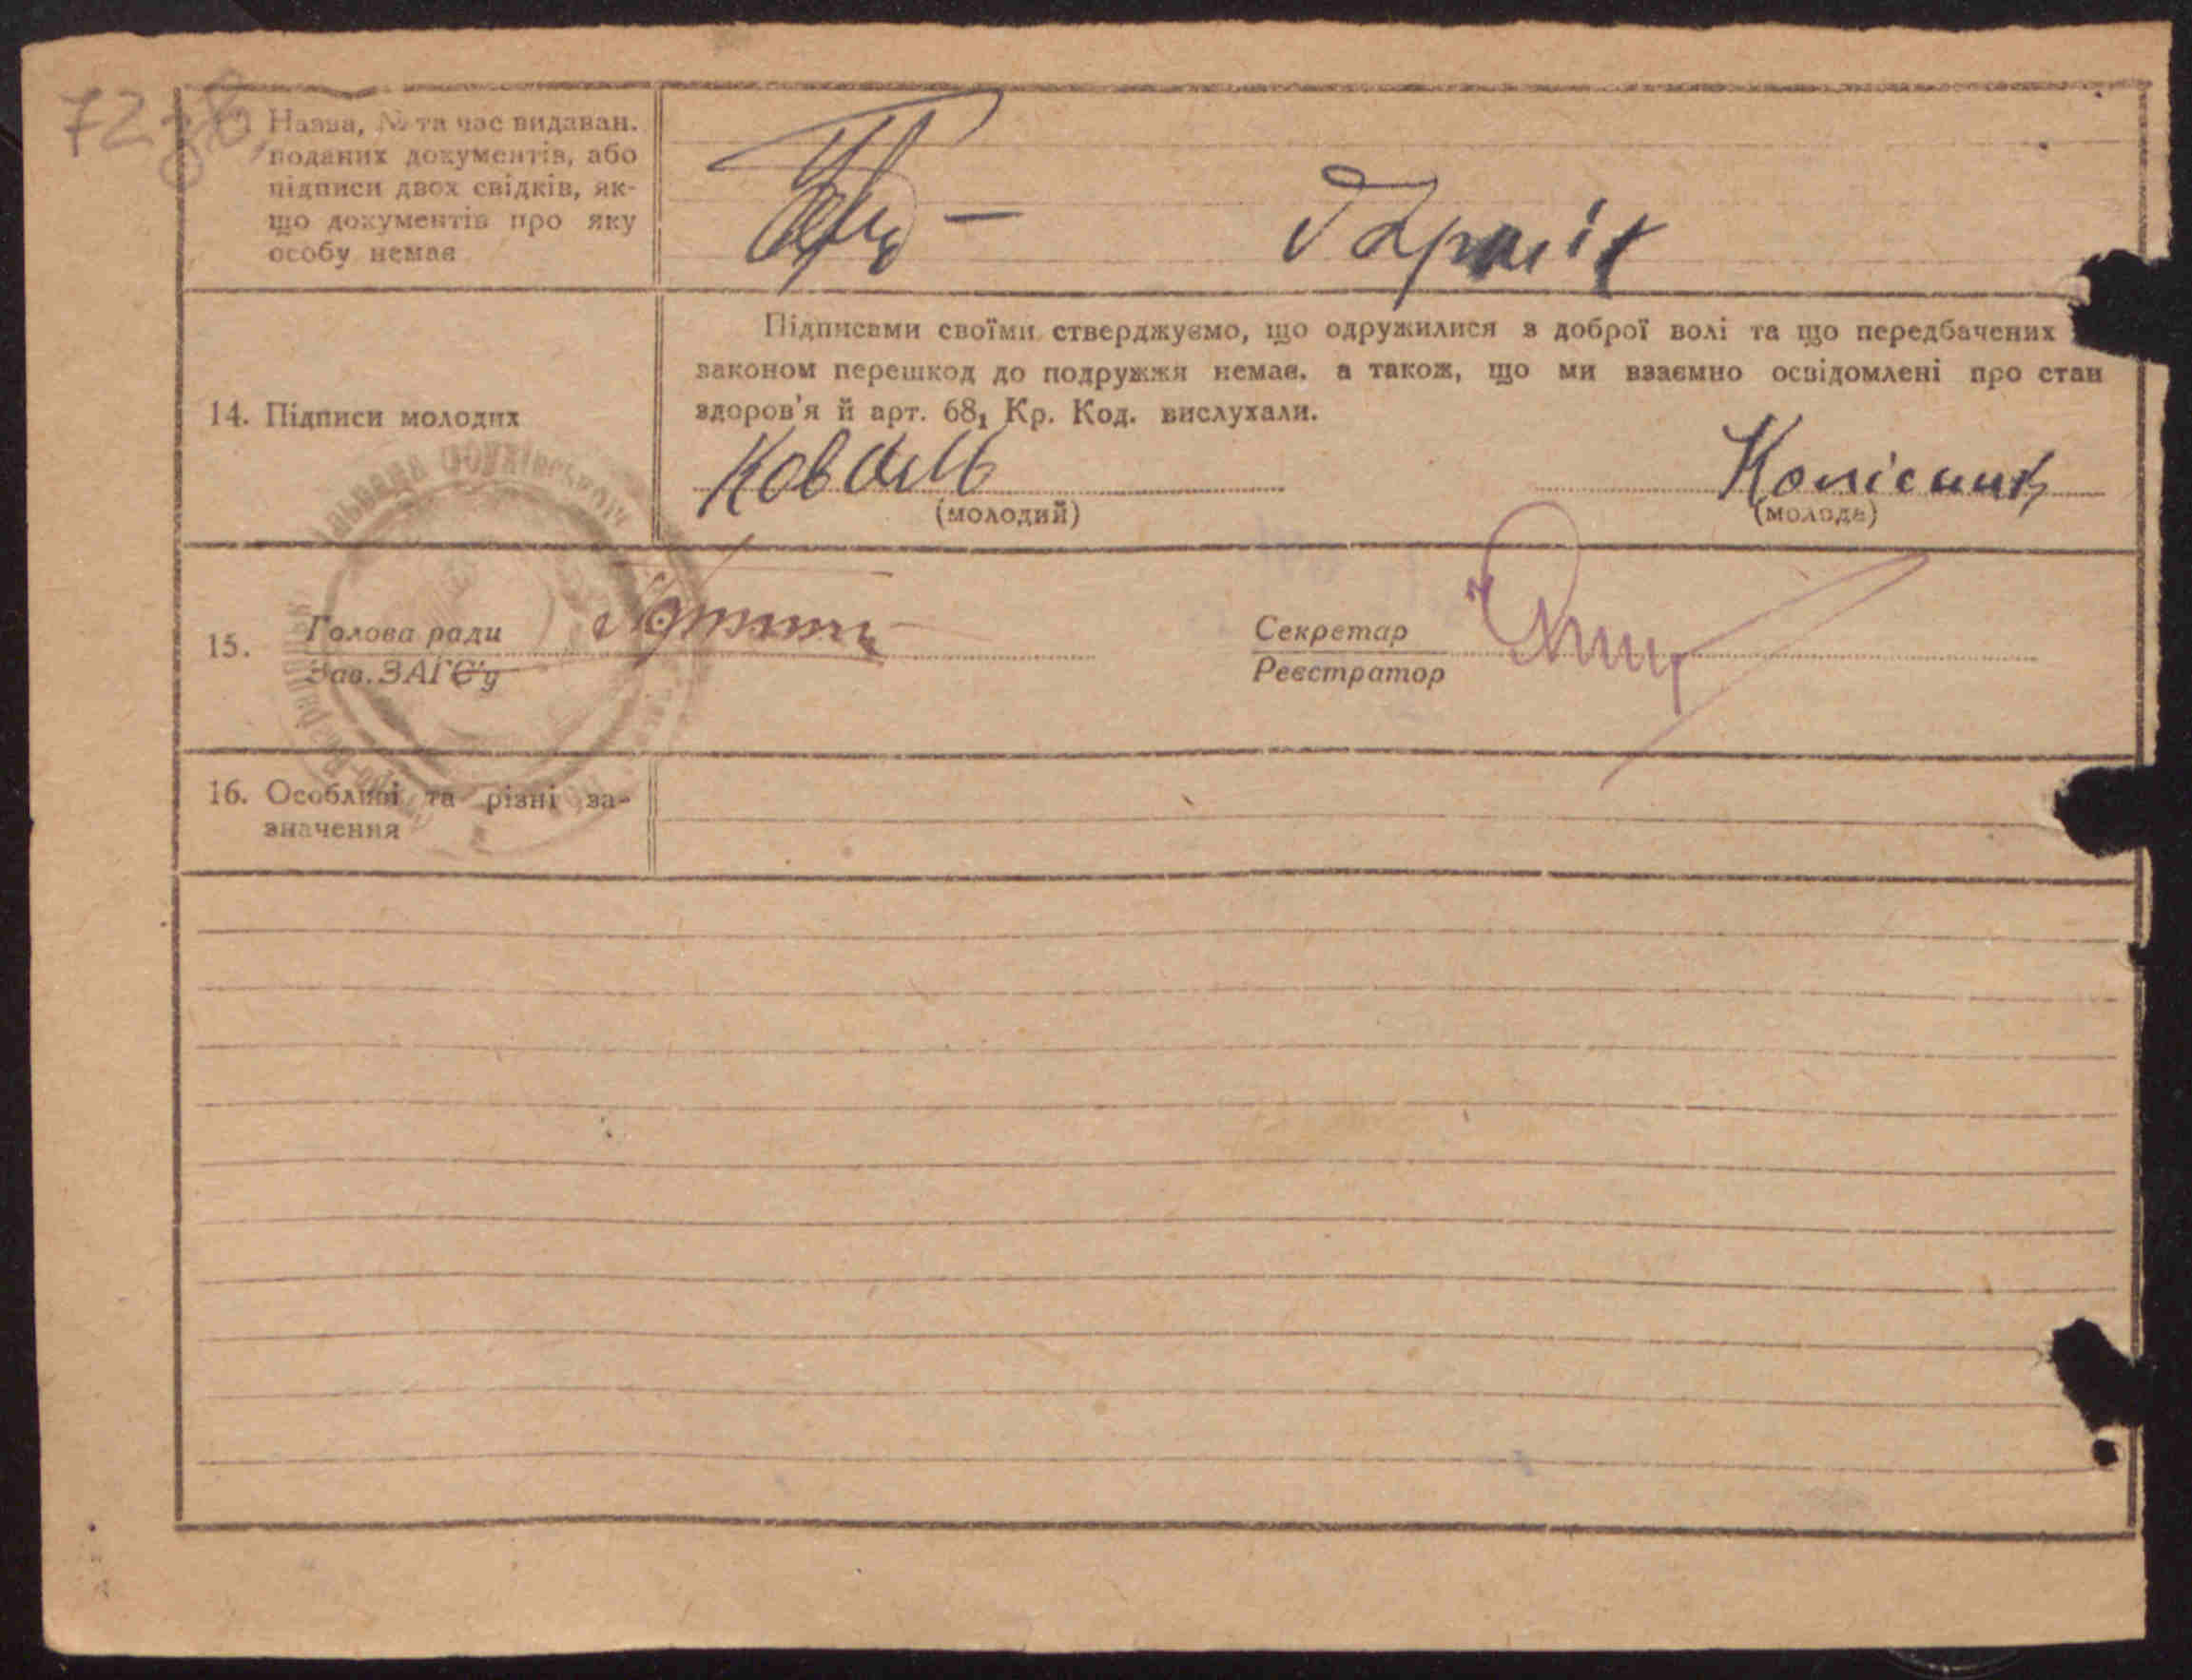 72 зв
Назва, № та час видаван.
поданих документів, або
підписи двох свідків, як-
що документів про яку
особу немає
14. Підписи молодих
Підписами своїми стверджуємо, що одружилися з доброї волі та що передбачених
законом перешкод до подружжя немає, а також, що ми взаємно освідомлені про стан
здоров'я й арт. 68₁ Кр. Код. вислухали.
Коваль
Колісник
(молодий)
(молода)
15.
Голова ради
Зав. ЗАГС'у
Секретар
Реєстратор
16. Особливі та різні за-
значення